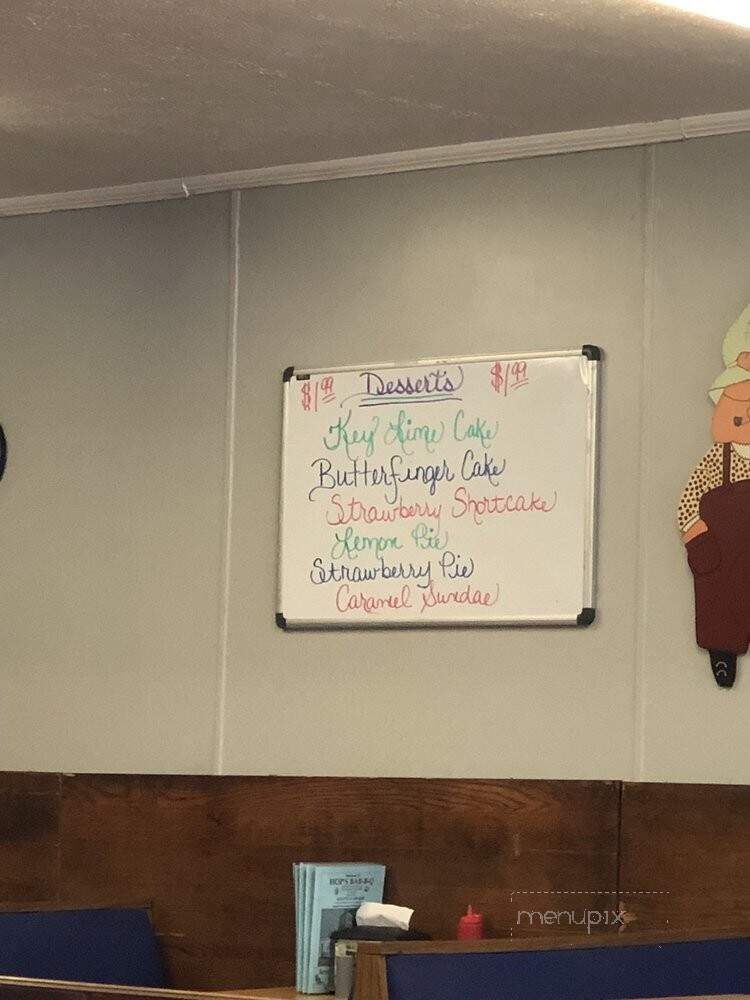 $1.99 Desserts $1.99
Key Lime Cake
Butterfinger Cake
Strawberry Shortcake
Lemon Pie
Strawberry Pie
Caramel Sundae
HOP'S BAR-B-Q
menupix